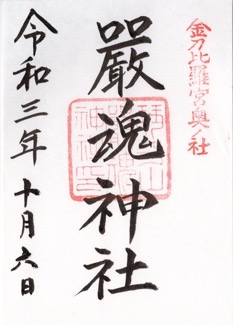 金刀比羅宮奥ノ社
嚴魂神社
令和三年十月六日